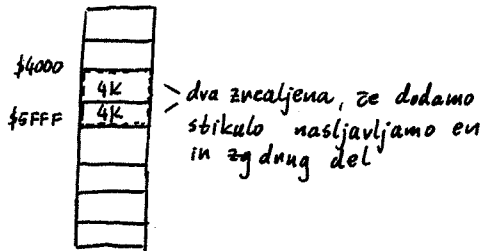 $4000
4K
4K
$5FFF
dva zrcaljena, če dodamo
stikulo nasljavljamo en
in zg drug del